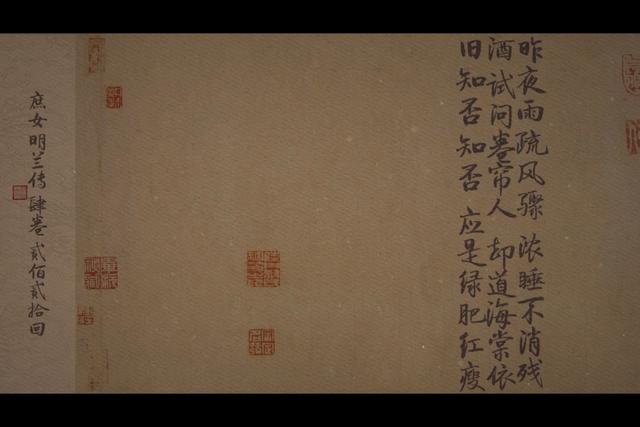 昨夜雨疏风骤 浓睡不消残
酒试问卷帘人 却道海棠依
旧知否知否 应是绿肥红瘦
庶女明兰传 肆卷 貳佰貳拾回